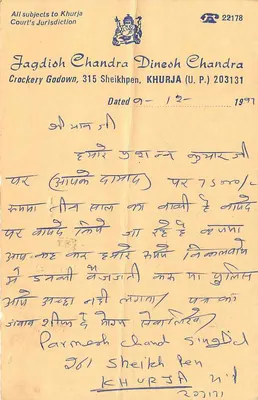 All subjects to Khurja
Court's Jurisdiction
22178
Jagdish Chandra Dinesh Chandra
Crockery Godown, 315 Sheikhpen, KHURJA (U. P.) 203131
Dated 9-12-1997
श्री मान जी
हमारे कुमार जी
पर (आपके दामाद) पर 7500/-
रुपया तीन साल का बाकी है वायदे
पर वायदे किये जा रहे है कृपया
आप कह कर हमारे रुपये निकलवाये
मे उनकी बेज्जती करू या पुलिस
आये अच्छा नही लगता/ पत्र का
जवाब शीघ्र दे
Parmesh Chand Singhal
261 Sheikh Pen
KHURJA U.P